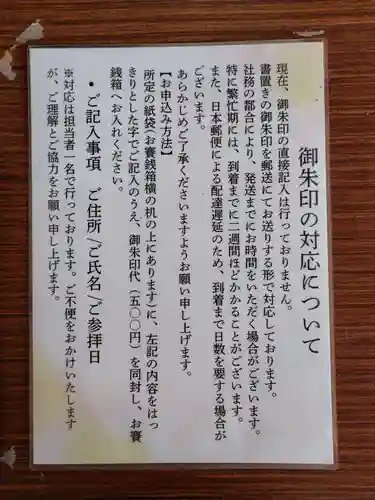 御朱印の対応について
現在、御朱印の直接記入は行っておりません。
書置きの御朱印を郵送にてお送りする形で対応しております。
社務の都合により、発送までにお時間をいただく場合がございます。
特に繁忙期には、到着までに二週間ほどかかることがございます。
また、日本郵便による配達遅延のため、到着まで日数を要する場合が
ございます。
あらかじめご了承くださいますようお願い申し上げます。
【お申込み方法】
所定の紙袋(お賽銭箱横の机の上にあります)に、左記の内容をはっ
きりとした字でご記入のうえ、御朱印代(五〇〇円)を同封し、お賽
銭箱へお入れください。
・ご記入事項 ご住所/ご氏名/ご参拝日
※対応は担当者一名で行っております。ご不便をおかけいたします
が、ご理解とご協力をお願い申し上げます。